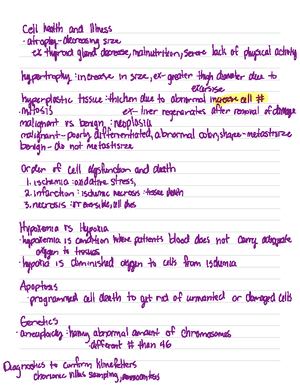 Cell health and Illness
- atrophy - decreasing size
ex thyroid gland decrease, malnutrition, severe lack of physical activity
hypertrophy : increase in size, ex - greater thigh diameter due to
exercise
hyperplastic tissue : thicken due to abnormal increase cell #
- mitosis ex - liver regenerates after removal of damage
malignant vs benign : neoplasia
malignant - poorly differentiated, abnormal color, shape - metastisize
benign - do not metastisize
Order of cell dysfunction and death
1. ischemia : oxidative stress,
2. infarction : ischemic necrosis - tissue death
3. necrosis : irreversible, cell dies
Hypoxemia vs Hypoxia
- hypoxemia is condition where patients blood does not carry adequate
oxygen to tissues
- hypoxia is diminished oxygen to cells from ischemia
Apoptosis
- programmed cell death to get rid of unwanted or damaged cells
Genetics
- aneuploidy : having abnormal amount of chromosomes
- different # than 46
Diagnostics to confirm
chorionic villus sampling, amniocentesis